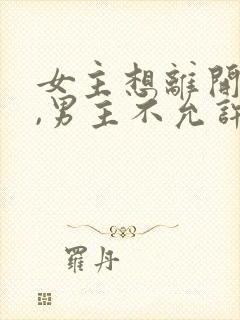 女主想離開
,男主不允許
羅丹